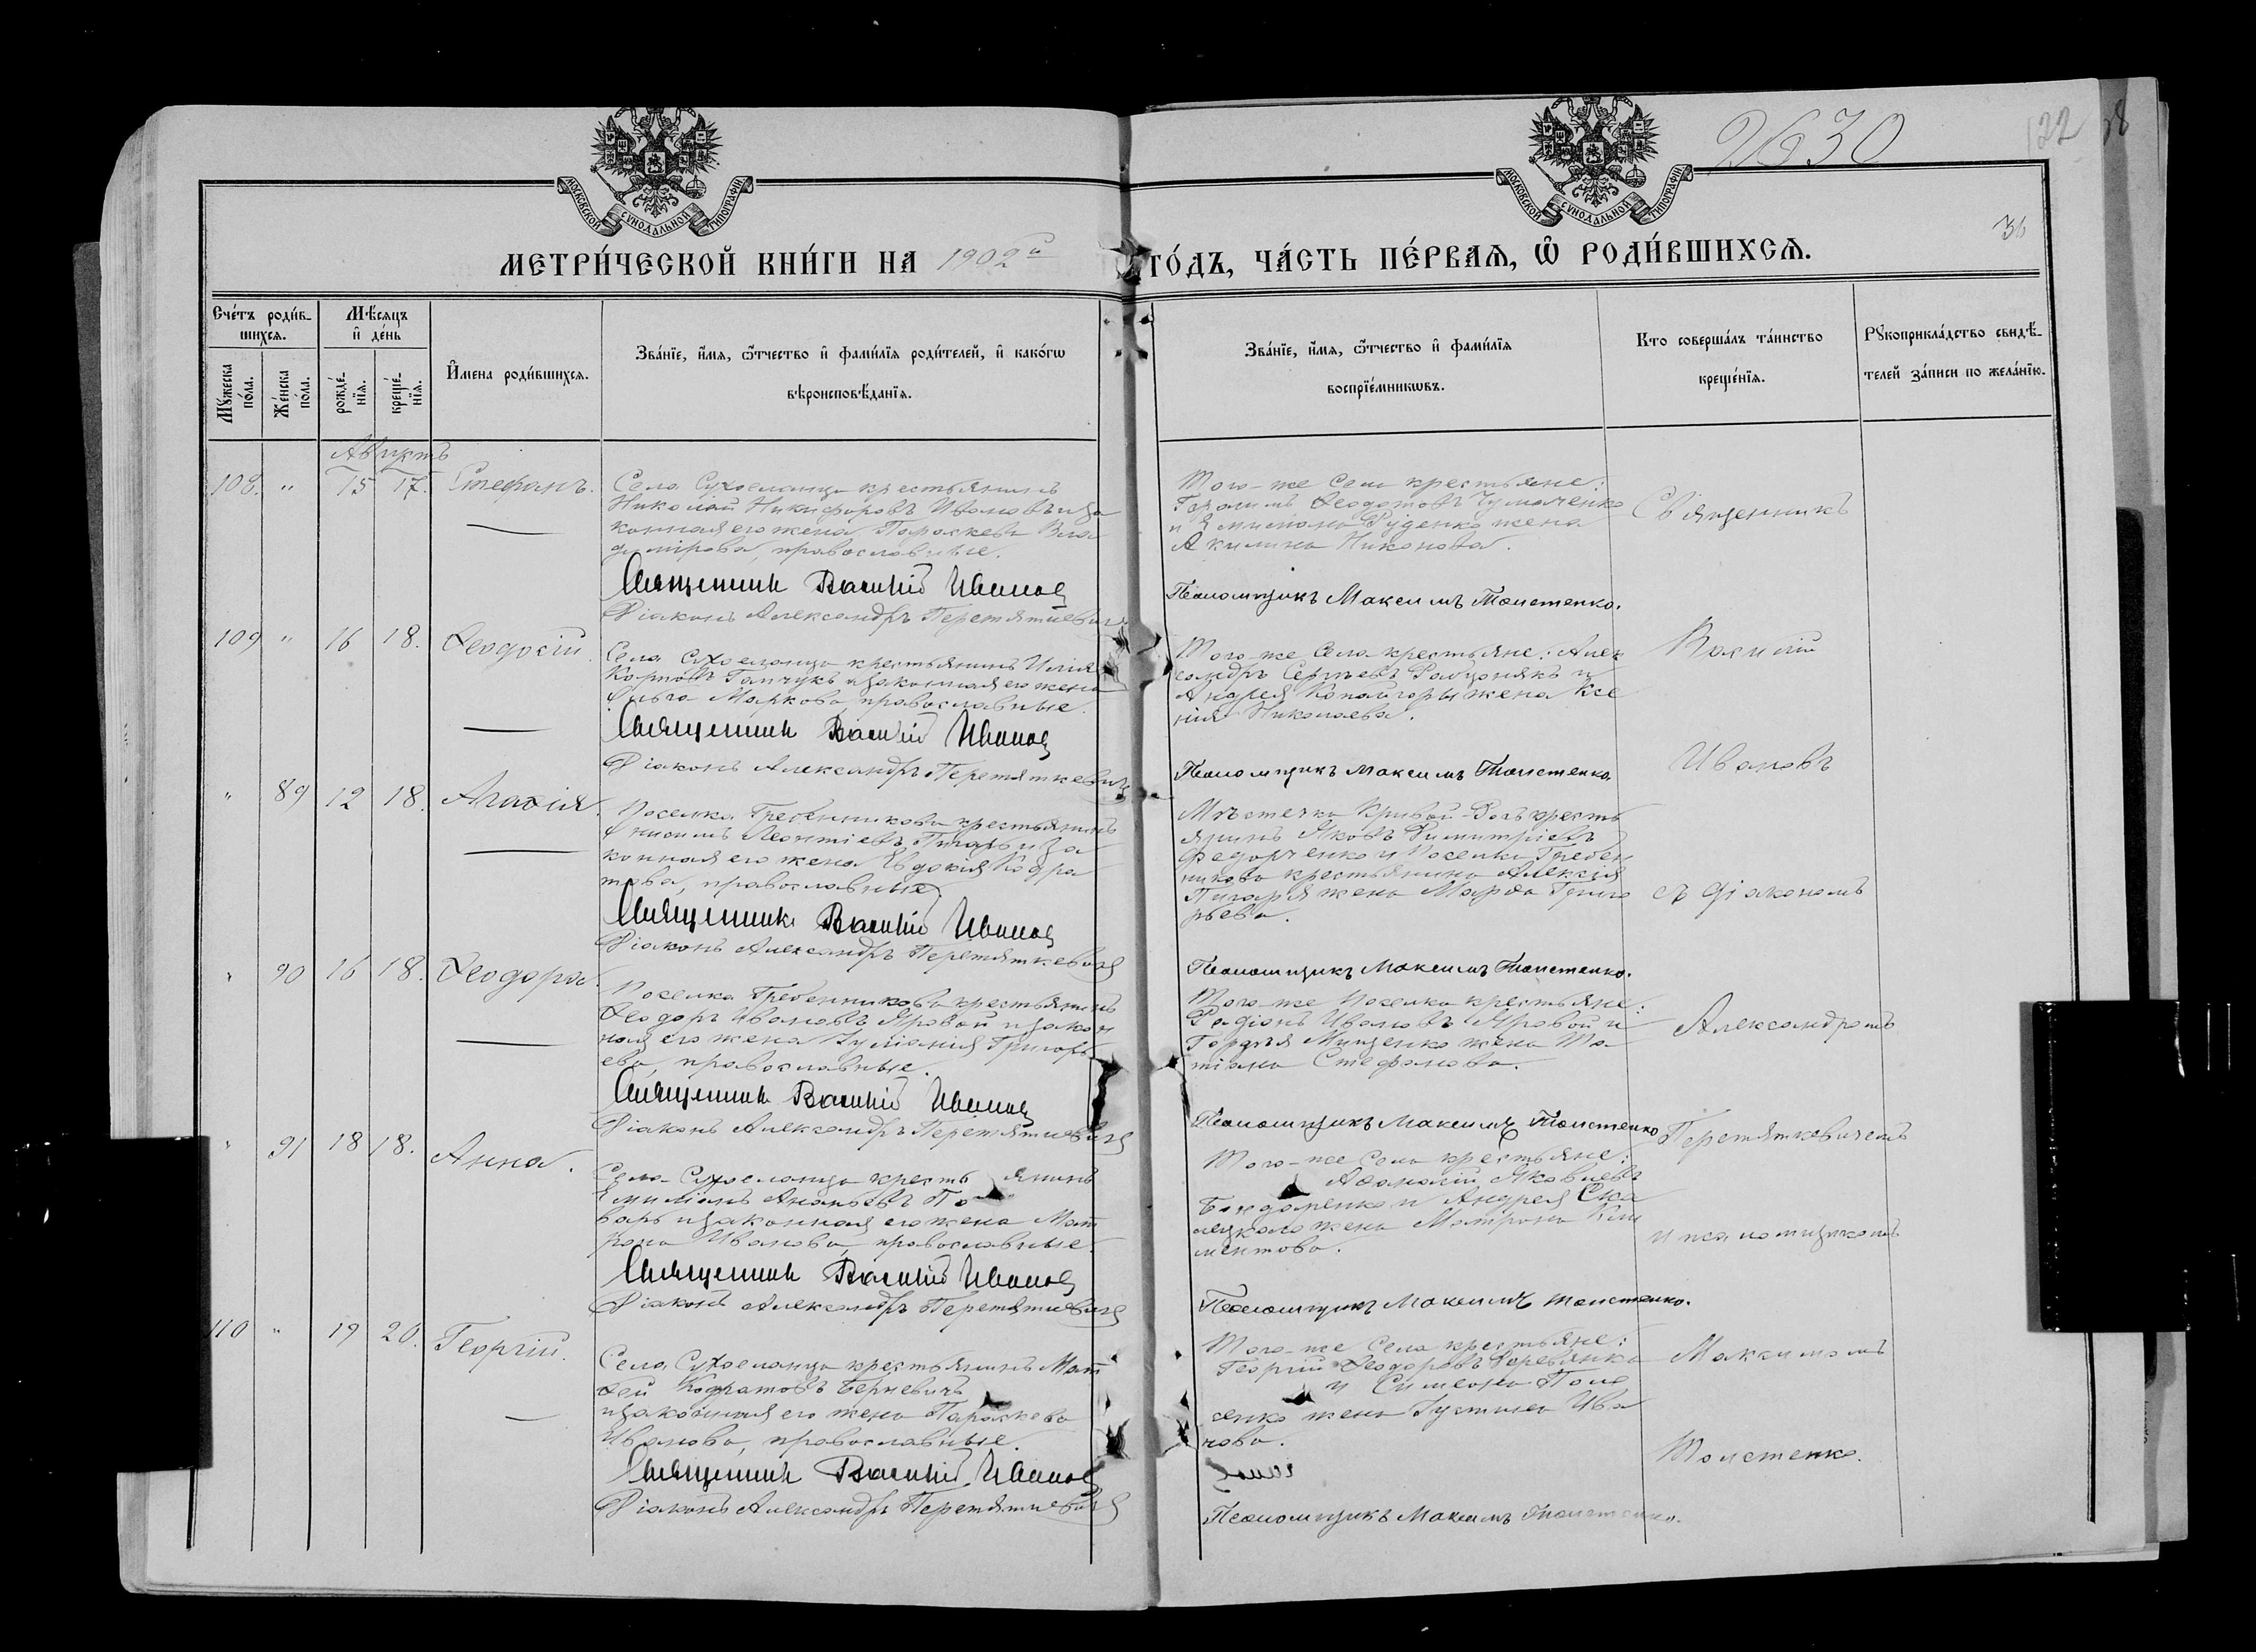 2630
122
38
МОСКОВСКОЙ СУНОДАЛЬНОЙ ТИПОГРАФІИ
МОСКОВСКОЙ СУНОДАЛЬНОЙ ТИПОГРАФІИ
36
МЕТРИ́ЧЕСКОЙ КНИ́ГИ НА 1902й
ГО́ДЪ, ЧА́СТЬ ПЕ́РВАѦ, Ѡ҆ РОДИ́ВШИХСѦ.
Сче́тъ роди́в-
шихсѧ.
Мꙋ́жеска по́ла.
Же́нска по́ла.
Мѣ́сѧцъ
и҆ де́нь
рожде́-нїѧ.
креще́-нїѧ.
И҆мена роди́вшихсѧ.
Зва́нїе, и҆́мѧ, ѻ҆́тчество и҆ фами́лїѧ роди́телей, и҆ како́гѡ
вѣроисповѣ́данїѧ.
Зва́нїе, и҆́мѧ, ѻ҆́тчество и҆ фами́лїѧ
воспрїе́мникѡвъ.
Кто соверша́лъ та́инство
креще́нїѧ.
Рꙋкоприкла́дство свидѣ́-
телей за́писи по жела́нїю.
Августъ
108. " 15 17. Стефанъ.
Села Сухоеланца крестьянинъ
Николай Никифоровъ Ивановъ и за
конная его жена Параскева Вла
димірова, православные.
Священникъ Василій Ивановъ
Діаконъ Александръ Перетяткевичъ
Того-же села крестьяне:
Герасимъ Ѳеодотовъ Чумаченко
и Емиліана Руденко жена
Акилина Никонова.
Псаломщикъ Максимъ Толстенко.
109 " 16 18. Ѳеодосій.
Села Сухоеланца крестьянинъ Илія
Карповъ Ганчукъ и законная его жена
Ольга Маркова, православные.
Священникъ Василій Ивановъ
Діаконъ Александръ Перетяткевичъ
Того-же села крестьяне: Алек
сандръ Сергѣевъ и
Андрея Копайгоры жена Ксе
нія Николаева.
Псаломщикъ Максимъ Толстенко
" 89 12 18. Агаѳія.
Поселка Гребенникова крестьянинъ
Онисимъ Леонтіевъ Пигарь и за
конная его жена Евдокія Кодра
това, православные.
Священникъ Василій Ивановъ
Діаконъ Александръ Перетяткевичъ
Мѣстечка Кривой-Рогъ кресть
янинъ Яковъ Димитріевъ
Федорченко и поселка Гребен
никова крестьянина Алексія
Пигаря жена Марѳа Григо
рьева.
Псаломщикъ Максимъ Толстенко.
" 90 16 18. Ѳеодора.
Поселка Гребенникова крестьянинъ
Ѳеодоръ Ивановъ Яровой и закон
ная его жена Іуліанія Григорь
ева, православные.
Священникъ Василій Ивановъ
Діаконъ Александръ Перетяткевичъ
Того-же поселка крестьяне:
Радіонъ Ивановъ Яровой и
Гордѣя Мищенко жена Та
тіана Стефанова.
Псаломщикъ Максимъ Толстенко
" 91 18 18. Анна.
Села Сухоеланца кресть янинъ
Емиліанъ Ананьевъ По
варъ и законная его жена Мат
рона Иванова, православные.
Священникъ Василій Ивановъ
Діаконъ Александръ Перетяткевичъ
Того-же села крестьяне:
Аѳанасій Яковлевъ
Бондаренко и Андрея Ска
лецкаго жена Матрона Кли
ментова.
Псаломщикъ Максимъ Толстенко.
110 " 19 20. Георгій.
Села Сухоеланца крестьянинъ Мат
ѳей Кодратовъ Берневичъ
и законная его жена Параскева
Иванова, православные.
Священникъ Василій Ивановъ
Діаконъ Александръ Перетяткевичъ
Того-же села крестьяне:
Георгій Ѳеодоровъ Деревянко
и Симеона Поло
сенко жена Іустина Ива
нова.
Псаломщикъ Максимъ Толстенко.
Священникъ
Василій
Ивановъ
съ діакономъ
Александромъ
Перетяткевичемъ
и псаломщикомъ
Максимомъ
Толстенко.